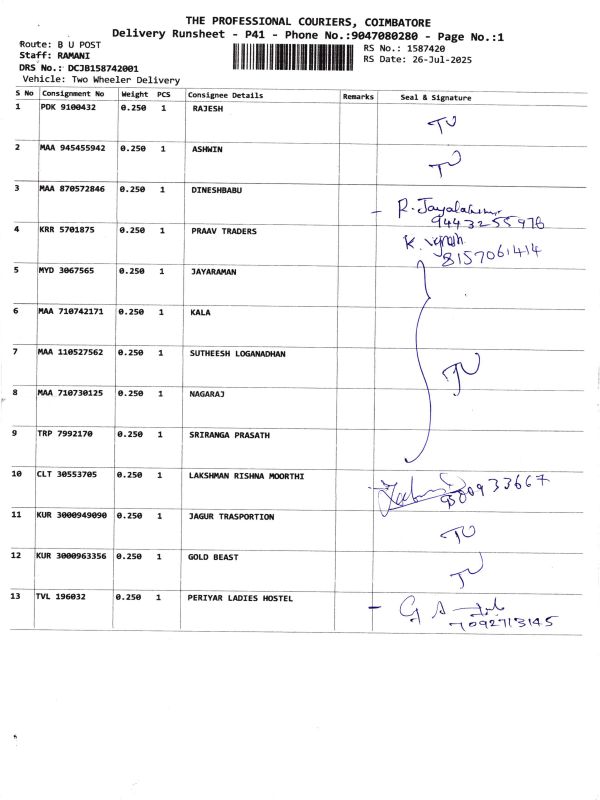 THE PROFESSIONAL COURIERS, COIMBATORE
Delivery Runsheet - P41 - Phone No.:9047080280 - Page No.:1
Route: B U POST
Staff: RAMANI
DRS No.: DCJB158742001
Vehicle: Two Wheeler Delivery
RS No.: 1587420
RS Date: 26-Jul-2025
S No Consignment No Weight PCS Consignee Details Remarks Seal & Signature
1 PDK 9100432 0.250 1 RAJESH TU
2 MAA 945455942 0.250 1 ASHWIN TU
3 MAA 870572846 0.250 1 DINESHBABU R.
9443255976
4 KRR 5701875 0.250 1 PRAAV TRADERS K. Vignesh
8157061414
5 MYD 3067565 0.250 1 JAYARAMAN
6 MAA 710742171 0.250 1 KALA
7 MAA 110527562 0.250 1 SUTHEESH LOGANADHAN TU
8 MAA 710730125 0.250 1 NAGARAJ
9 TRP 7992170 0.250 1 SRIRANGA PRASATH
10 CLT 30553705 0.250 1 LAKSHMAN RISHNA MOORTHI
11 KUR 3000949090 0.250 1 JAGUR TRASPORTION TU
12 KUR 3000963356 0.250 1 GOLD BEAST TU
13 TVL 196032 0.250 1 PERIYAR LADIES HOSTEL
7092713145